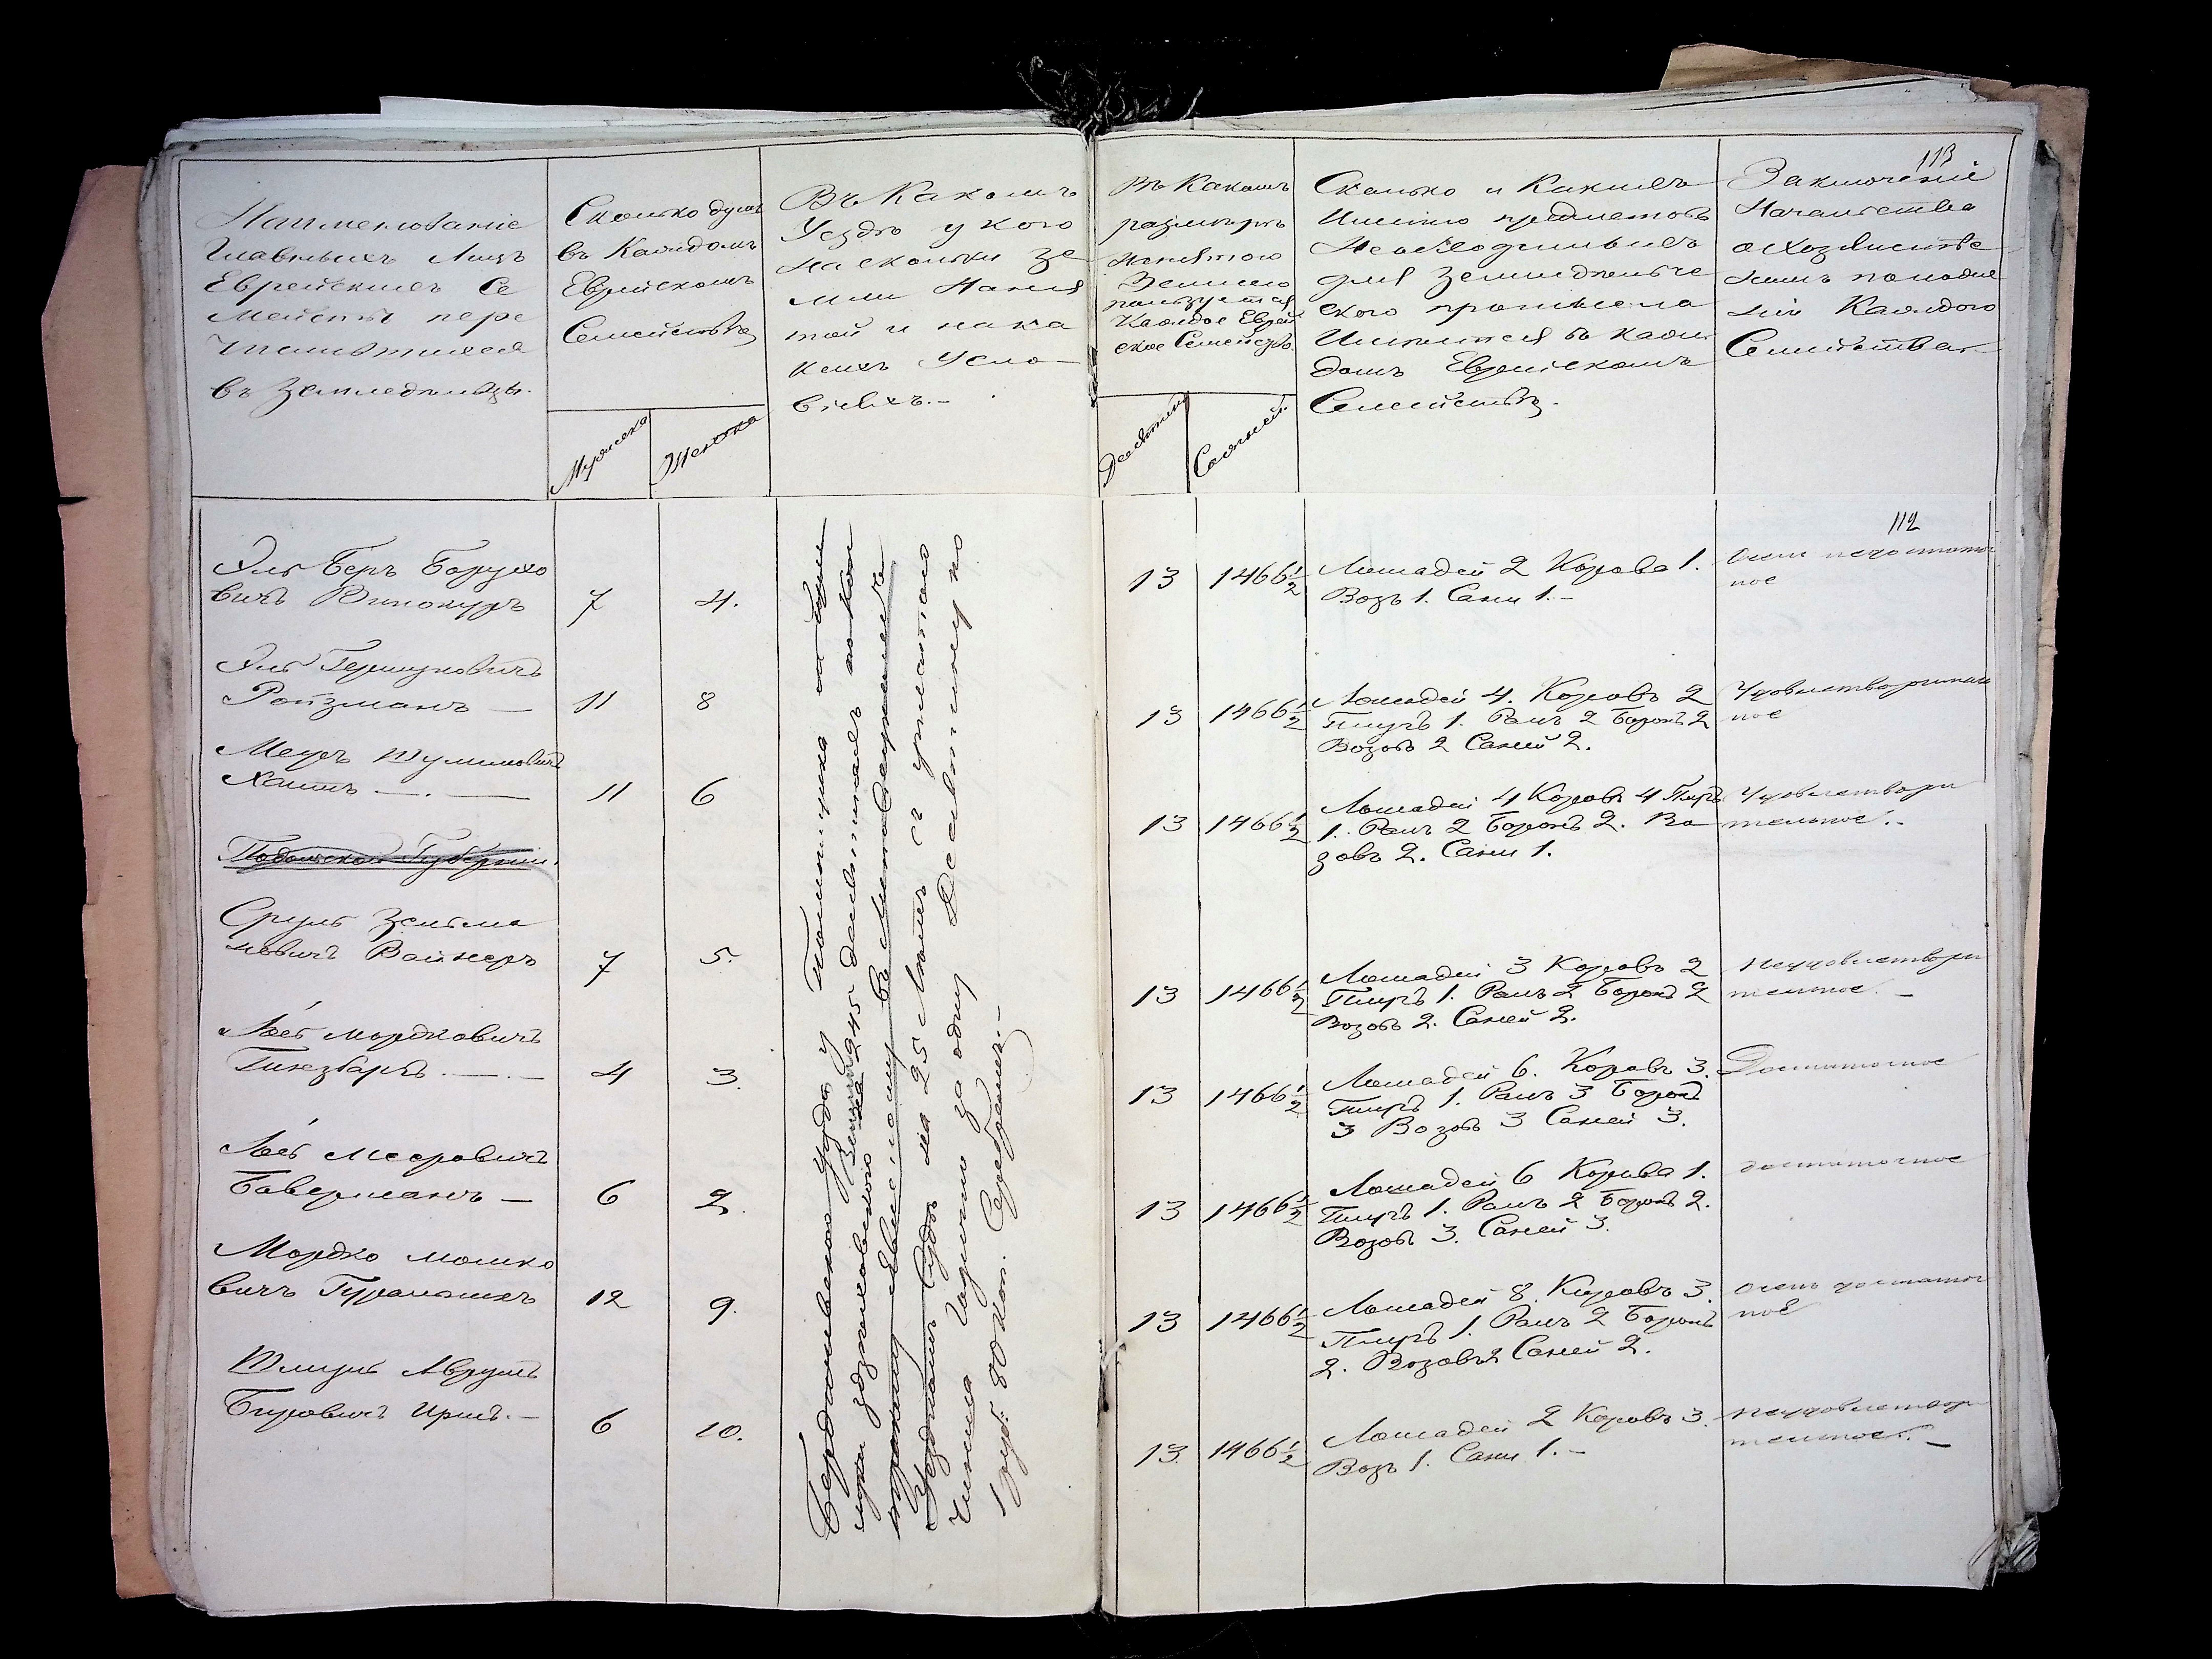 113
Наименованіе
Главныхъ Лицъ
Еврейскихъ Се
мействъ пере
числившихся
въ Земледельцы.
Сколько душъ
въ Каждомъ
Еврейскомъ
Семействе
Мужска
Женска
Въ Какомъ
Уезде у кого
на сколько зе
мли Наня
той и на ка
кихъ Усло
віяхъ.-
Въ Какомъ
размере
нанятою
Землею
пользуется
Каждое Еврей
ское Семейство.
Десятин
Саженей.
Сколько и Какихъ
Именно предметовъ
Необходимыхъ
для Земледельче
ского промысла
Имеется въ каж
домъ Еврейскомъ
Семействе.
Заключеніе
Начальства
о Хозяйстве
Каждого
Семейства.
112
Эль Беръ Борухо
вичъ Винокуръ
7 4.
13 1466½
Лошадей 2 Корова 1.
Возъ 1. Сани 1.-
Очень недостаточ
ное
Эль Гершуновичъ
Ройзманъ —
11 8
13 1466½
Лошадей 4. Коровъ 2
Плугъ 1. Ралъ 2 Боронъ 2
Возовъ 2 Саней 2.
Удовлетворитель
ное
Мееръ Шулимовичъ
Хаимъ —.—
11 6
13 1466½
Лошадей 4 Коровъ 4 Плугъ
1. Ралъ 2 Боронъ 2. Во
зовъ 2. Сани 1.
Удовлетвори
тельное.-
Подольской Губерніи.
Сруль Зельма
новичъ Вайнеръ
7 5.
13 1466½
Лошадей 3 Коровъ 2
Плугъ 1. Ралъ 2 Боронъ 2
Возовъ 2. Саней 2.
Неудовлетвори
тельное. —
Лейб Мордковичъ
Гинзбаръ. —.—
4 3.
13 1466½
Лошадей 6. Коровъ 3.
Плугъ 1. Ралъ 3 Боронъ
3 Возовъ 3 Саней 3.
Достаточное
Лейб Мееровичъ
Баверманъ —
6 2.
13 1466½
Лошадей 6 Корова 1.
Плугъ 1. Ралъ 2 Боронъ 2.
Возовъ 3. Саней 3.
достаточное
Мордко Мошко
вичъ
12 9.
13 1466½
Лошадей 8. Коровъ 3.
Плугъ 1. Ралъ 2 Боронъ
2. Возовъ 2 Саней 2.
очень достаточ
ное
Аврумъ
Беровичъ Иршъ.-
6 10.
13. 1466½
Лошадей 2 Коровъ 3.
Возъ 1. Сани 1.-
неудовлетвори
тельное. —
Бердичевского уезда у Помещика
Земли на 245 десятинахъ
на 25 Летъ съ уплатою
Чинша Годично за одну Десятину по
1 руб. 80 коп. Серебромъ.-